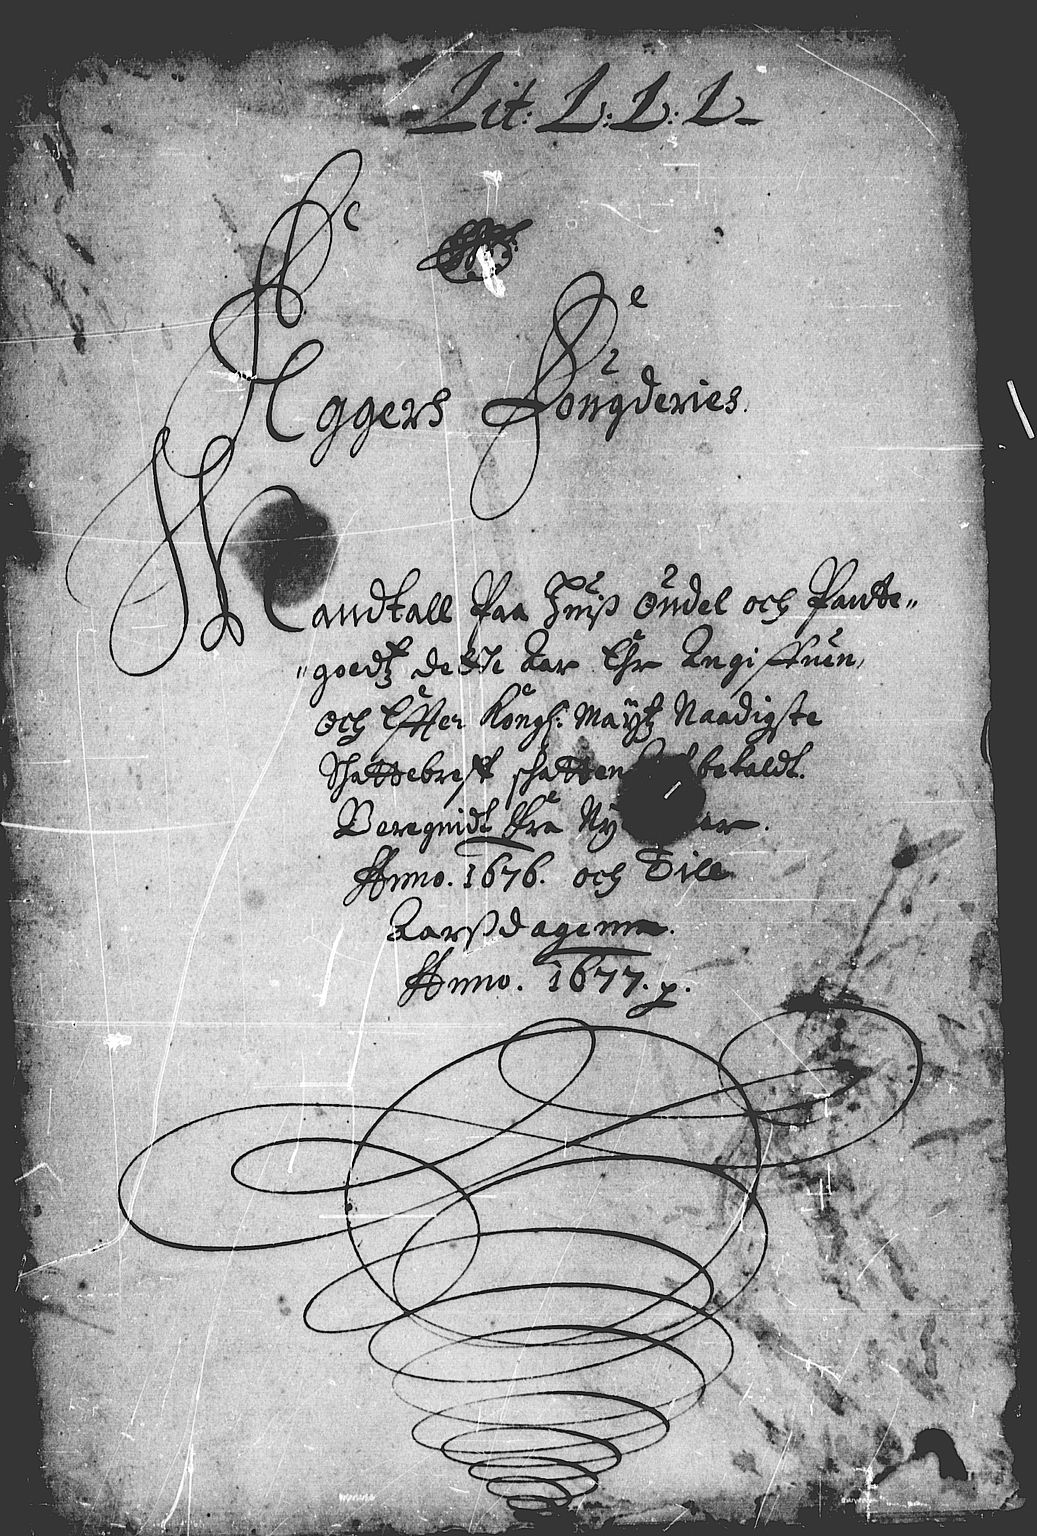 Lit: L: L: L
Aggers Fougderies
Mandtall Paa Huis Oudel och Pante„
„goedtz dette Aar Ehr Angiffuen,
och Effter Kongl: Maÿtz Naadigste
Schattebreff schatten betaldt.
Beregnidt fra Ny aar.
Anno. 1676. och Till
Aarsdagenn.
Anno. 1677.